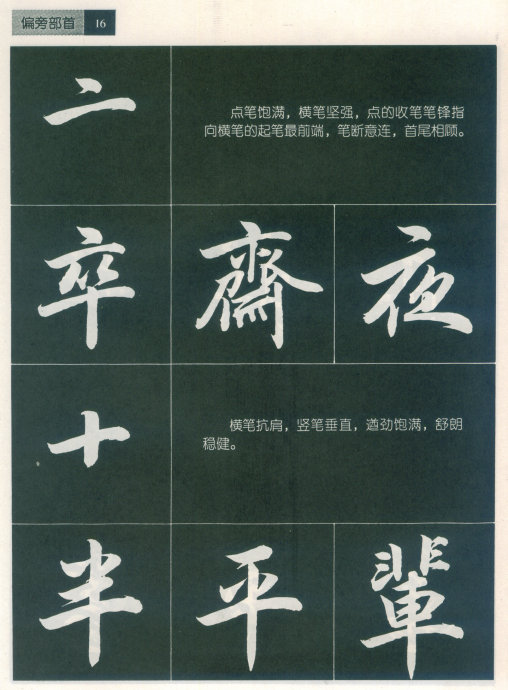 偏旁部首 16
亠
点笔饱满，横笔坚强，点的收笔笔锋指
向横笔的起笔最前端，笔断意连，首尾相顾。
卒 齋 夜
十
横笔抗肩，竖笔垂直，遒劲饱满，舒朗
稳健。
半 平 輩